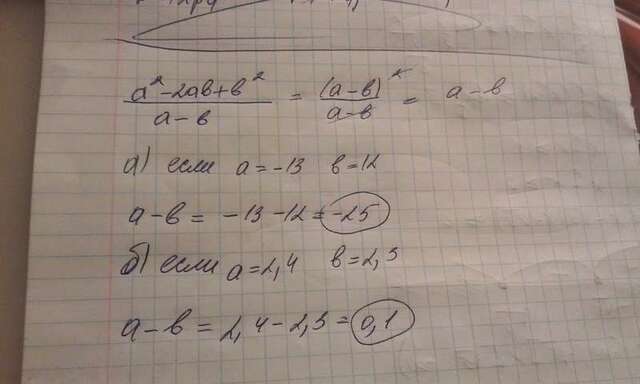 a²-2ab+b² / a-b = (a-b)² / a-b = a-b
а) если a=-13 b=12
a-b = -13-12=-25
б) если a=2,4 b=2,3
a-b = 2,4-2,3=0,1